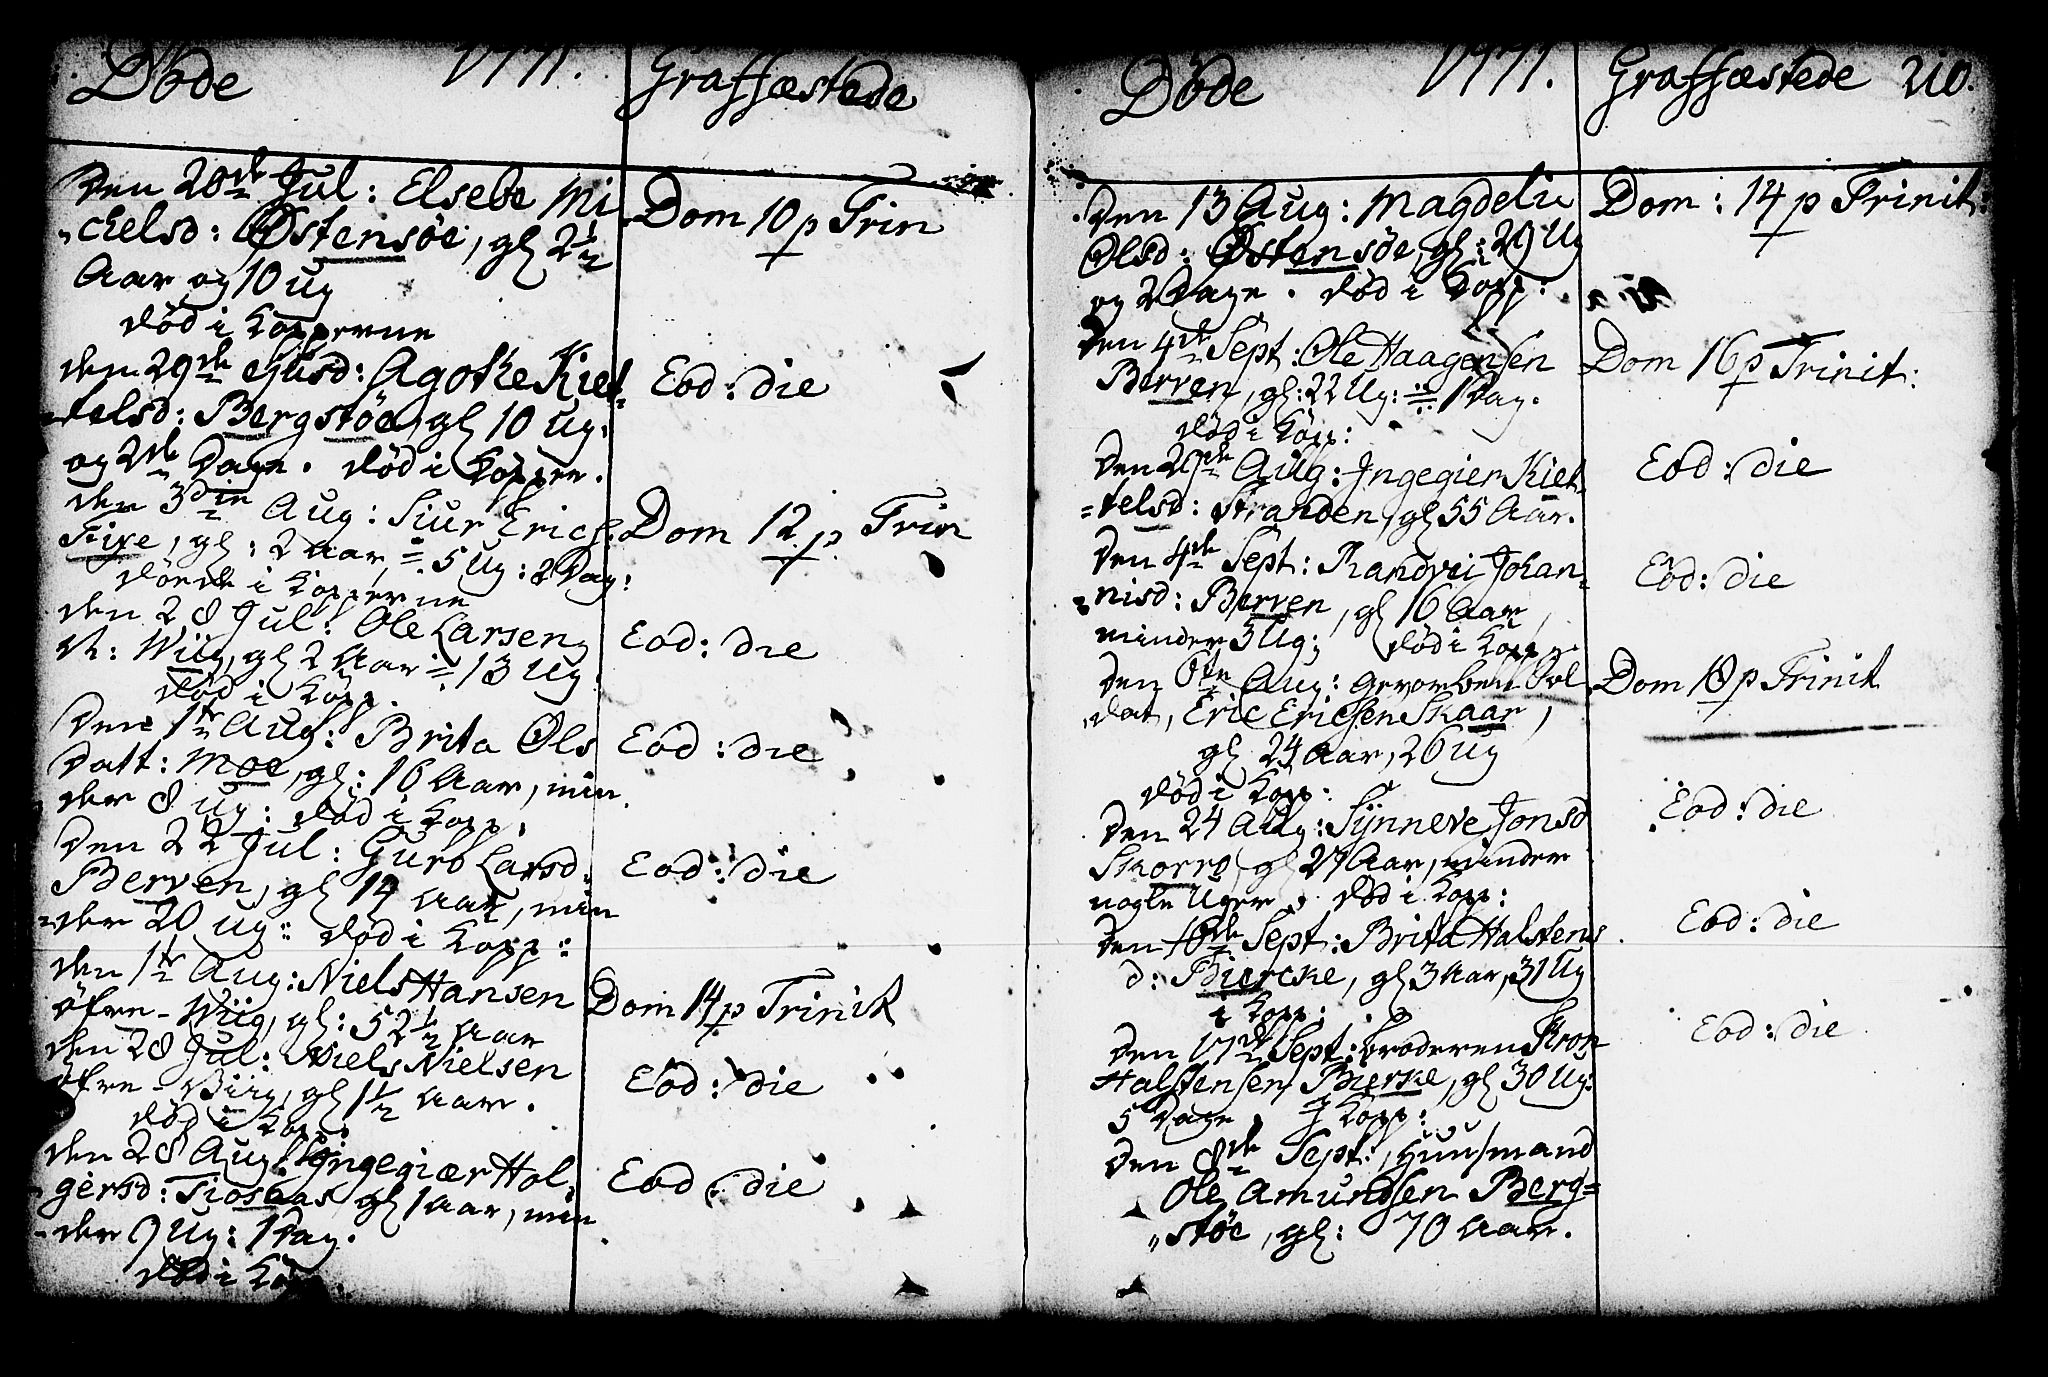 Døde 1771. Graffæstede
Den 28de Jul: Elsebe Mi
chelsd: Østensøe, gl 2 1/2
Aar og 10 Ug
død i Kopperne
Dom 10 p Trin
den 29de ejusd: Agothe Kiet
telsd: Bergstøe, gl 10 Ug:
og 2de Dage. død i Koppe.
Eod: die
den 3die Aug: Siur Erichs.
Fixe, gl: 2 Aar, = 5 Ug: 8 Dag:
døde i Kopperne
Dom 12 p Trin
den 28 Jul: Ole Larsen
N: Wiig, gl 2 Aar = 13 Ug
død i Kopp.
Eod: die
Den 1te Aug: Brita Ols
Datt: Moe, gl: 16 Aar, min
der 8 Ug: død i Kopp.
Eod: die
Den 22 Jul: Guro Larsd.
Berven, gl 14 Aar, min
der 20 Ug: død i Kopp:
Eod: die
den 1te Aug: Niels Hansen
Øfre-Wiig, gl: 52 1/2 Aar
Dom 14 p Trinit
den 28 Jul: Niels Nielsen
Øfre-Viig, gl 1 1/2 Aar.
død i Kopp:
Eod: die
den 28 Aug: Ingegiær Hol
gersd: Tiosaas gl 1 Aar, min
der 9 Ug: 1 Dag.
død i
Eod: die
Døde 1771. Graffæstede 210.
Den 13 Aug: Magdeli
Olsd: Østensøe, gl: 29 Ug
og 2 Dage. død i Kopp:
Dom: 14 p Trinit:
Den 4de Sept: Ole Haagensen
Berven, gl: 22 Ug: = 1 Dag.
død i Kopp:
Dom 16 p Trinit:
Den 29de Aug: Ingegier Kiet
telsd: Stranden, gl 55 Aar.
Eod: die
Den 4de Sept: Randvei Johan
nisd: Berven, gl 16 Aar,
minder 3 Ug; død i Kopp
Eod: die
Den 6te Aug: gevorben Sol
dat, Eric Ericsen Skaar,
gl 24 Aar, 26 Ug
død i Kopp:
Dom 18 p Trinit
Den 24 Aug: Synneve Jonsd
Skorro, gl 27 Aar, minder
nogle Uger, død i Kopp:
Eod: die
Den 16de Sept: Brita Halstens
d: Biercke, gl 3 Aar, 31 Ug
i Kopp:
Eod: die
Den 17de Sept: broderen
Halstensen Bierke, gl 30 Ug:
5 Dage, I Kopp:
Eod: die
Den 8de Sept:, Huusmand
Ole Amundsen Berg=
støe, gl: 70 Aar.